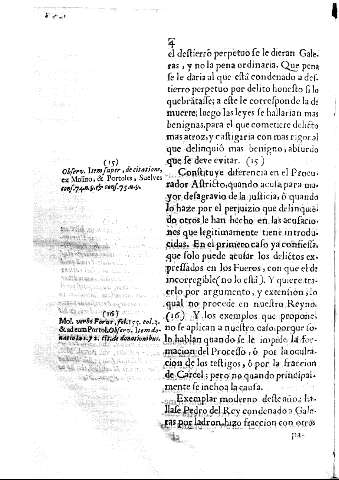 4
el destierro perpetuo se le dieran Gale-
ras, y no la pena ordinaria. Que pena
se le daria al que està condenado a des-
tierro perpetuo por delito honesto si lo
quebrātasse; a este le corresponde la de
muerte; luego las leyes se hallarian mas
benignas, para el que cometiere delicto
mas atroz, y castigaria con mas rigor al
que delinquiò mas benigno, absurdo
que se deve evitar. (15)
(15)
Observ. Item super, de citatione,
ex Molino, & Portoles, Suelves
Constituye diferencia en el Procu-
rador Astricto, quando acusa para ma-
yor desagravio de la justicia, ô quando
lo haze por el perjuizio que delinquiẽ-
do otros le han hecho en las acusacio-
nes que legitimamente tiene introdu-
cidas. En el primero caso ya confiessa,
que solo puede acusar los delictos ex-
pressados en los Fueros, con que el de
incorregible (no lo està) Y quiere tra-
erlo por argumento, y extension; lo
qual no procede en nuestro Reyno.
(16) Y los exemplos que propone,
no se aplican a nuestro caso, porque so-
lo hablan quando se le impide la for-
macion del Processo, ô por la oculta-
cion de los testigos, ô por la fraccion
de Carcel; pero no quando principal-
mente se inchoa la causa.
(16)
Mol. verbo Forus, fol. 155. col. 3.
& ad eum Portol. Observ. Item do-
natio la 1. y 2. tit. de donationibus.
Exemplar moderno destea no; ha-
llase Pedro del Rey condenado a Gale-
ras por ladron, hizo fraccion con otros
pa-